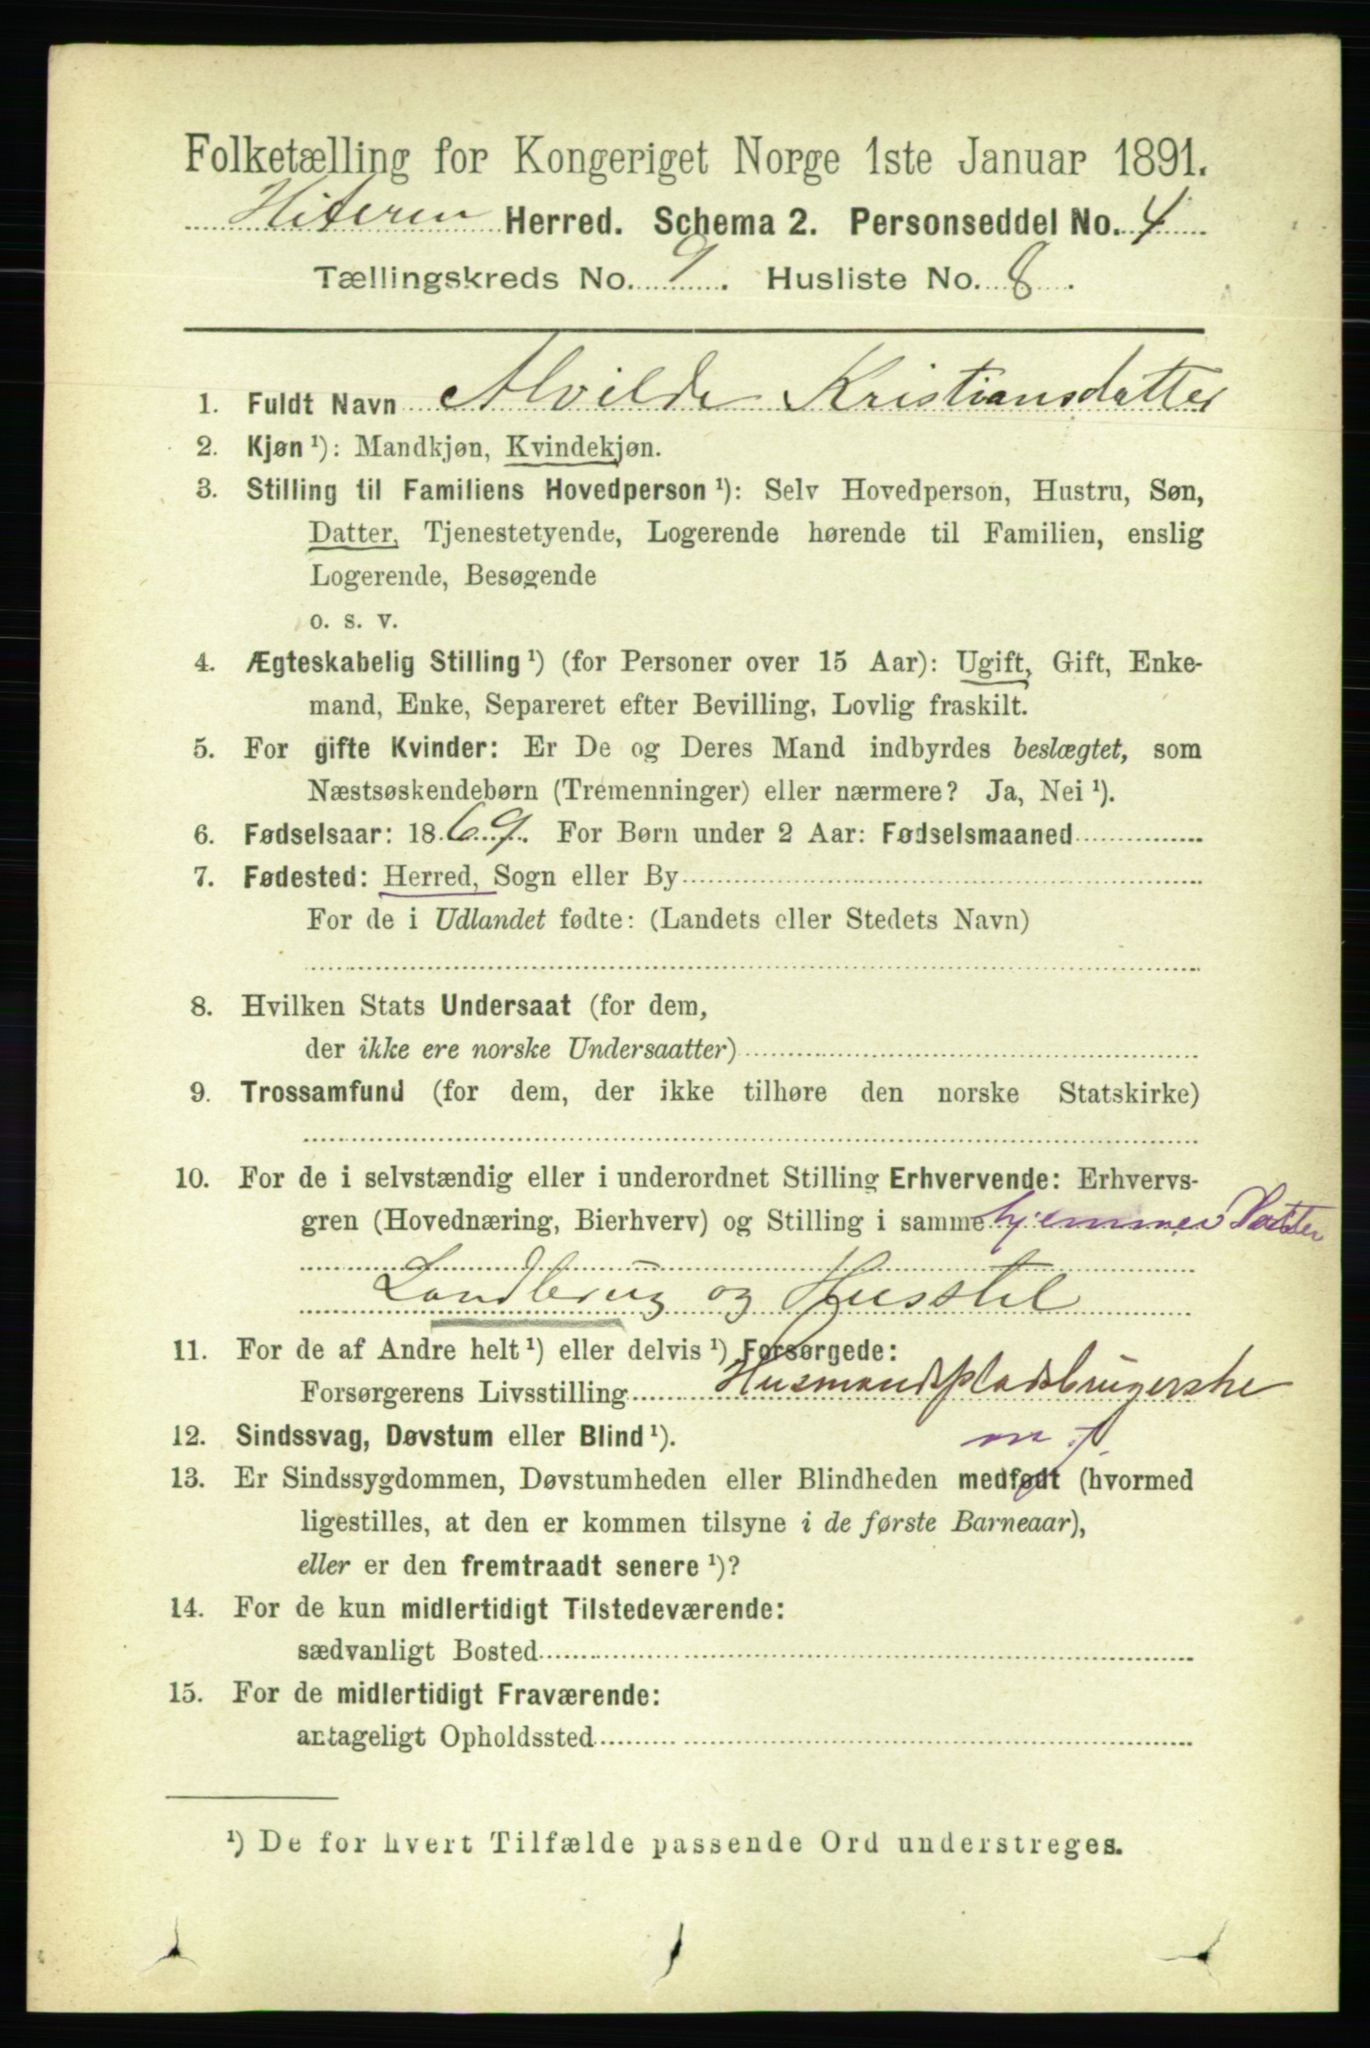 Folketælling for Kongeriget Norge 1ste Januar 1891.
Hiteren Herred. Schema 2. Personseddel No. 4
Tællingskreds No. 9. Husliste No. 8.
1. Fuldt Navn Alvilde Kristiansdatter
2. Kjøn ¹): Mandkjøn, Kvindekjøn.
3. Stilling til Familiens Hovedperson ¹): Selv Hovedperson, Hustru, Søn,
Datter, Tjenestetyende, Logerende hørende til Familien, enslig
Logerende, Besøgende
o. s. v.
4. Ægteskabelig Stilling ¹) (for Personer over 15 Aar): Ugift, Gift, Enke-
mand, Enke, Separeret efter Bevilling, Lovlig fraskilt.
5. For gifte Kvinder: Er De og Deres Mand indbyrdes beslægtet, som
Næstsøskendebørn (Tremenninger) eller nærmere? Ja, Nei ¹).
6. Fødselsaar: 1869. For Børn under 2 Aar: Fødselsmaaned
7. Fødested: Herred, Sogn eller By
For de i Udlandet fødte: (Landets eller Stedets Navn)
8. Hvilken Stats Undersaat (for dem,
der ikke ere norske Undersaatter)
9. Trossamfund (for dem, der ikke tilhøre den norske Statskirke)
10. For de i selvstændig eller i underordnet Stilling Erhvervende: Erhvervs-
gren (Hovednæring, Bierhverv) og Stilling i samme hjemmev Datter
Landbrug og Husstel
11. For de af Andre helt ¹) eller delvis ¹) Forsørgede:
Forsørgerens Livsstilling Husmandspladsbrugerske
12. Sindssvag, Døvstum eller Blind ¹). m. J.
13. Er Sindssygdommen, Døvstumheden eller Blindheden medfødt (hvormed
ligestilles, at den er kommen tilsyne i de første Barneaar),
eller er den fremtraadt senere ¹)?
14. For de kun midlertidigt Tilstedeværende:
sædvanligt Bosted
15. For de midlertidigt Fraværende:
antageligt Opholdssted
¹) De for hvert Tilfælde passende Ord understreges.